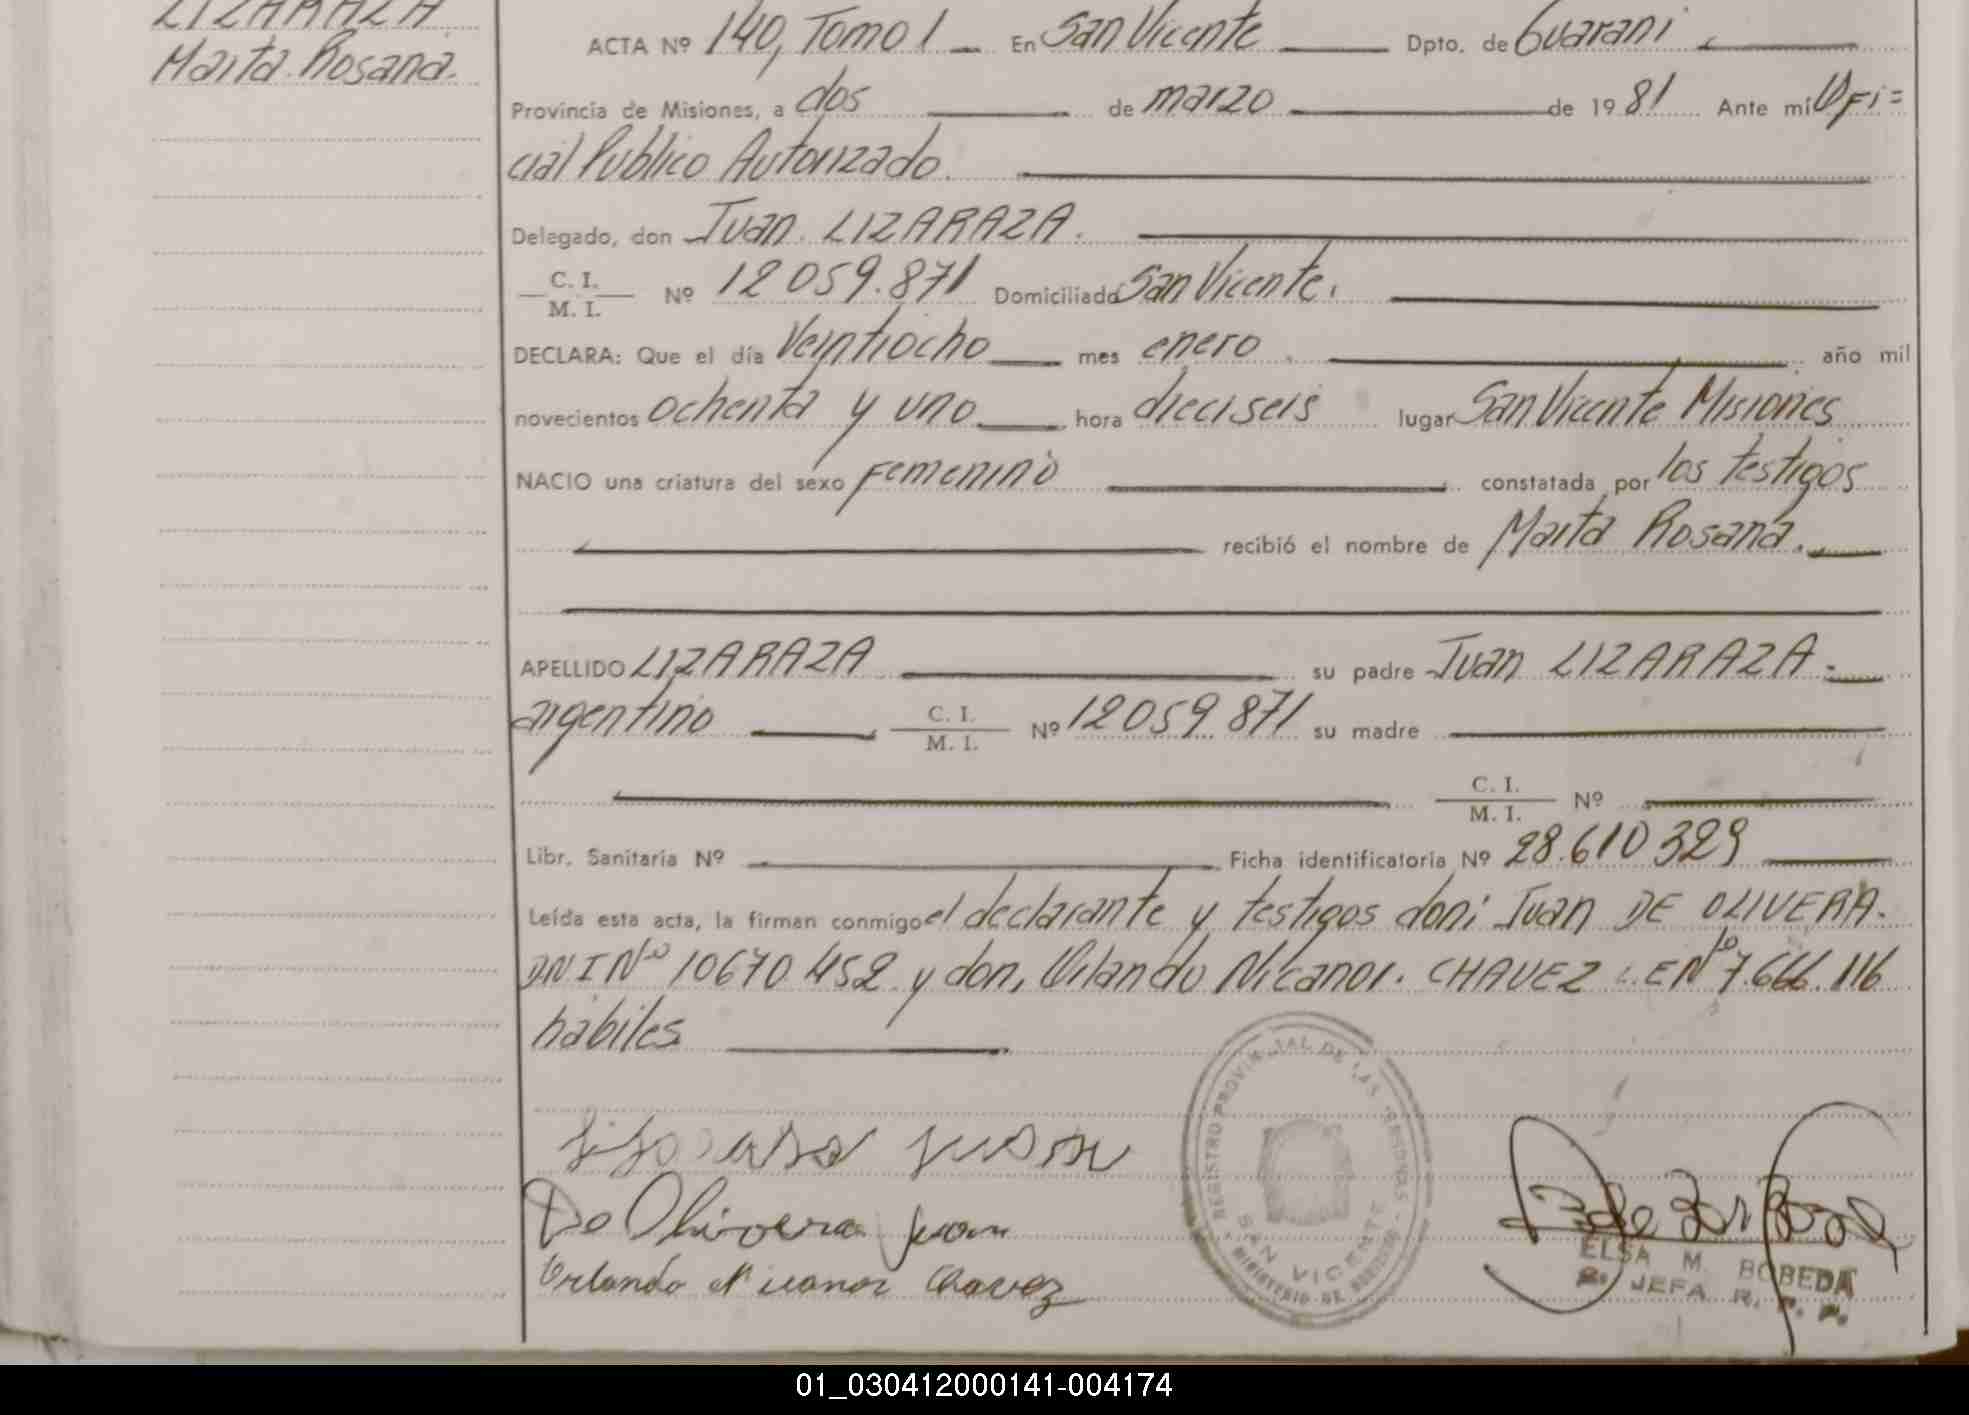 LIZARAZA
Marta Rosana.
ACTA Nº 140, Tomo 1 En San Vicente Dpto. de Guaraní
Provincia de Misiones, a dos de marzo de 1981 Ante mí Ofi=
cial Publico Autorizado.
Delegado, don Juan LIZARAZA.
C. I.
M. I. Nº 12 059.871 Domiciliado San Vicente.
DECLARA: Que el día Veintiocho mes enero año mil
novecientos ochenta y uno hora dieciseis lugar San Vicente Misiones
NACIO una criatura del sexo Femenino constatada por los testigos
recibió el nombre de Marta Rosana.
APELLIDO LIZARAZA su padre Juan LIZARAZA.
argentino C. I. M. I. Nº 12 059 871 su madre
C. I.
M. I. Nº
Libr. Sanitaria Nº Ficha identificatoria Nº 28.610 329
Leída esta acta, la firman conmigo el declarante y testigos don: Juan DE OLIVERA.
DNI Nº 10670 452 y don, Orlando Nicanor. CHAVEZ L.E Nº 7.666.116
habiles
Lizaraza Juan
De Olivera Juan
Orlando Nicanor Chavez
REGISTRO PROVINCIAL DE LAS PERSONAS
SAN VICENTE
MINISTERIO DE
ELSA M. BOBEDA
JEFA R. P. P.
01_030412000141-004174